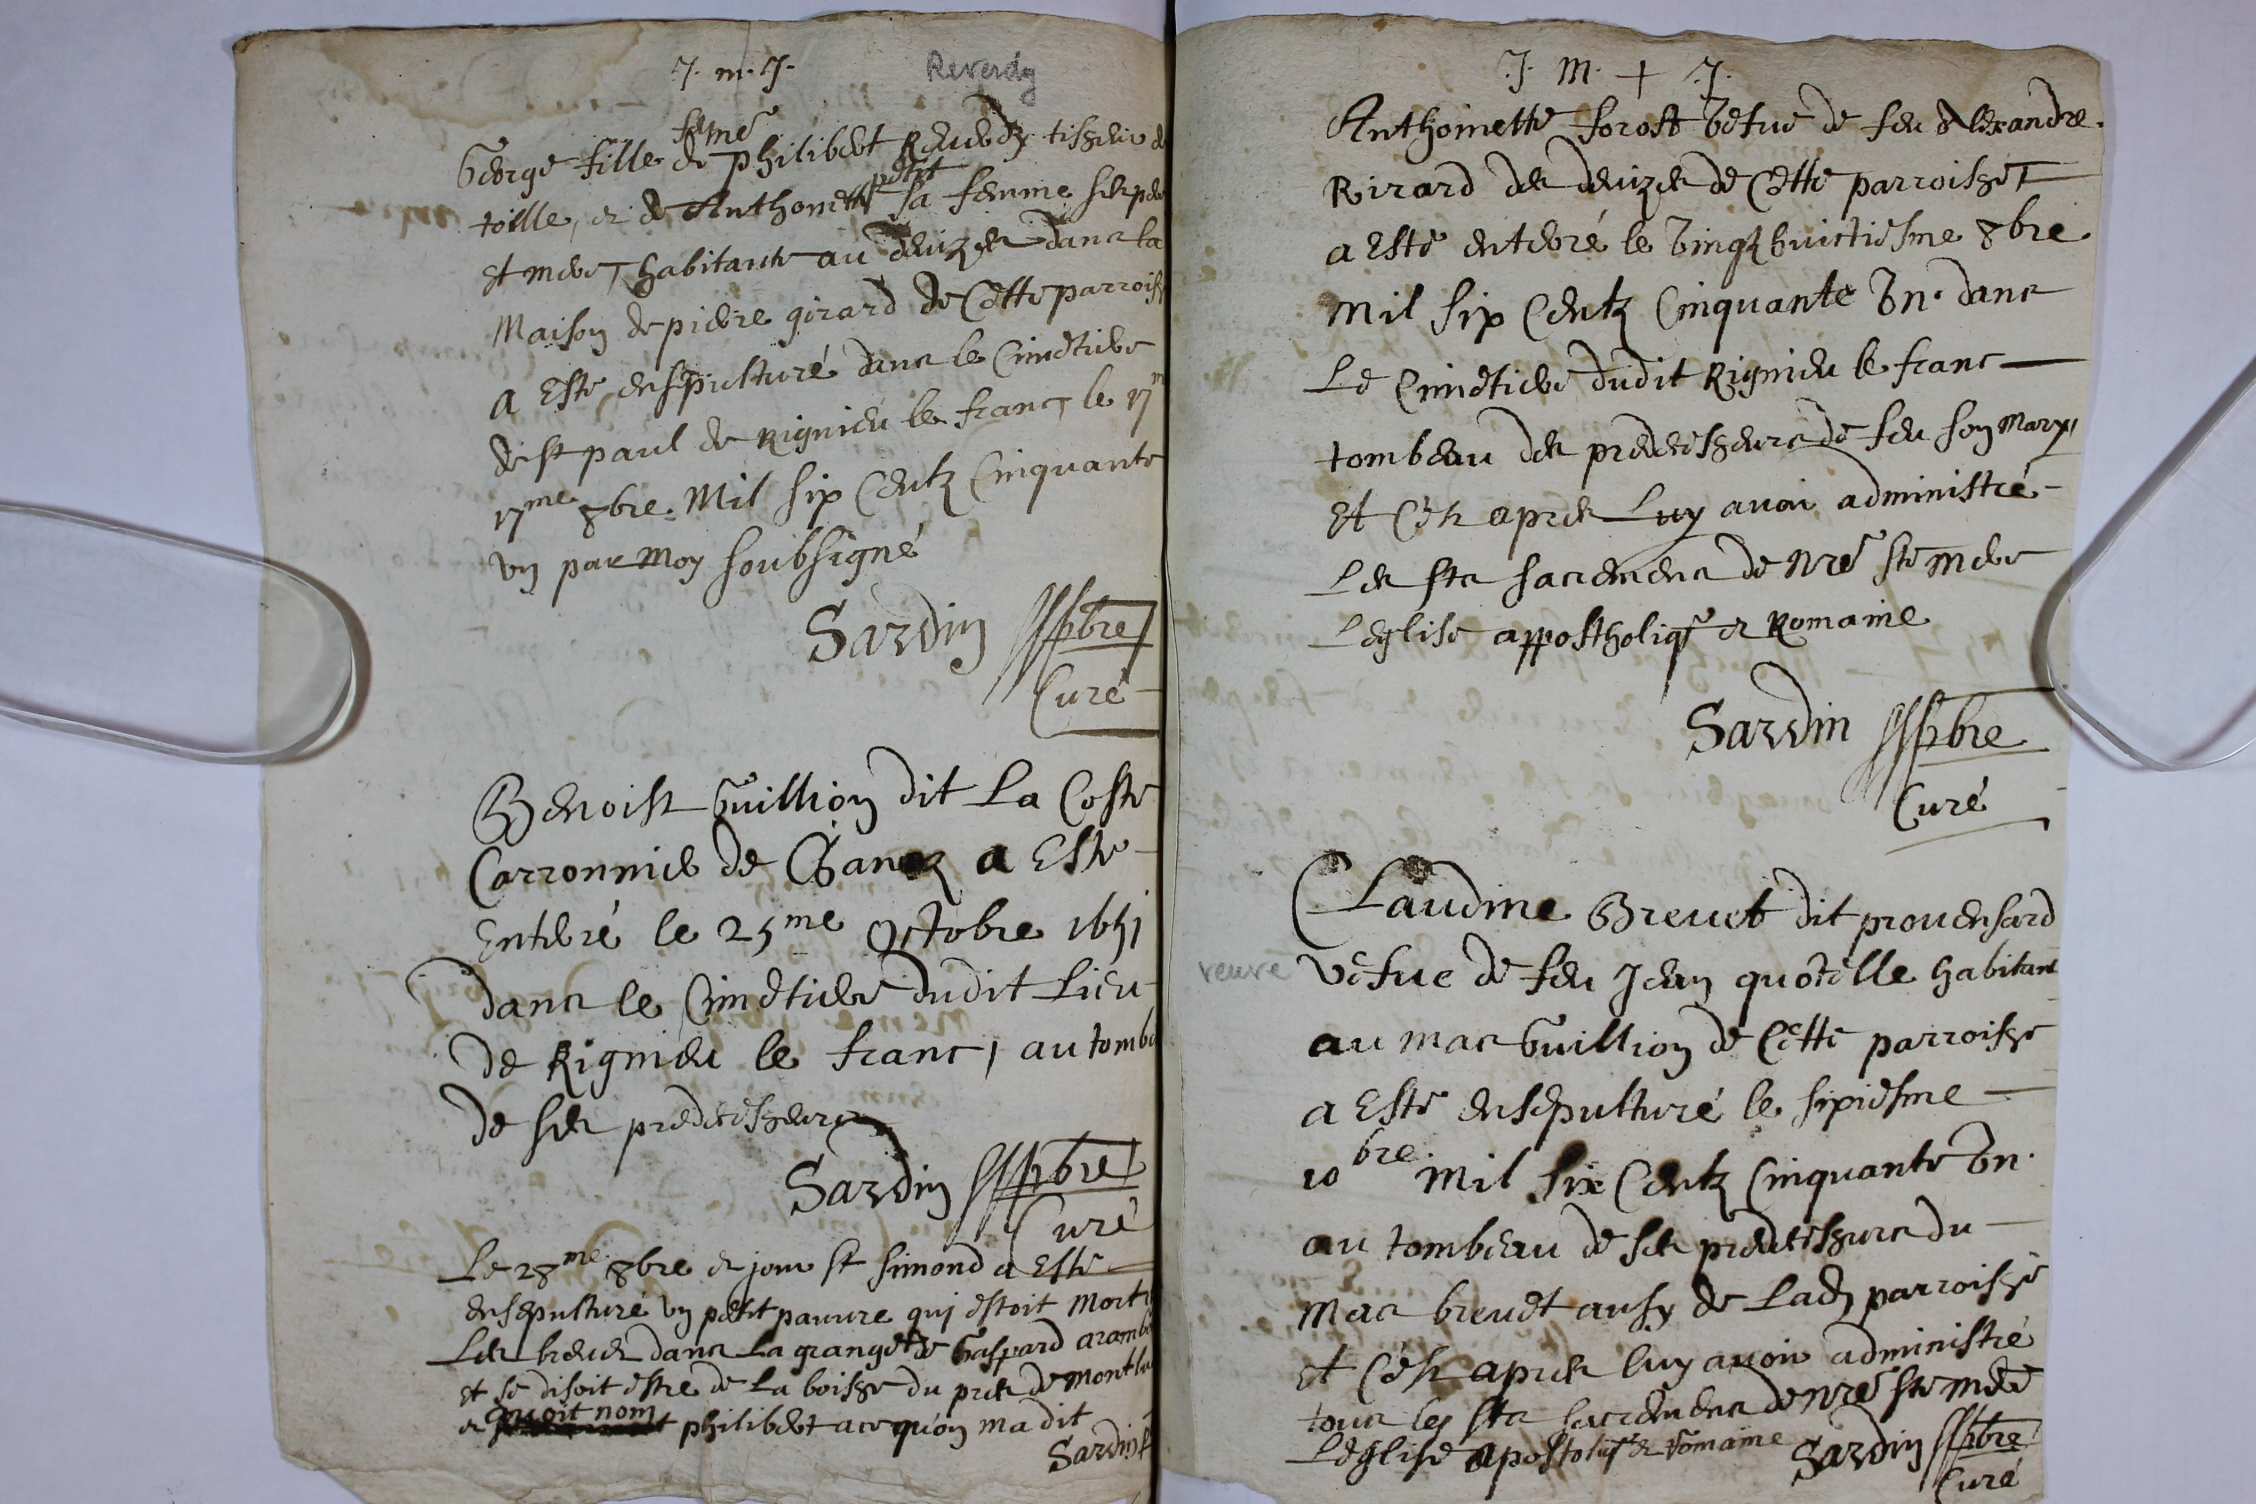 J. m. J.
Reverdy
George fille de philibert Reverdy tissere de
toille, et de Anthonette petit sa femme ses pere
et mere, habitants au deuizes dans la
Maison de pierre girard de Cette parroisse
a Esté ensepulturé dans le Cimetiere
de st paul de Rignieu le franc, le 17m
17me 8bre. Mil six Centz Cinquante
un par Moy soubsigné
Sardin pbre
Curé
Benoist Guillion dit La Coste
Carronnier de Chanoz a Esté
Enterré le 25me Octobre 1651
dans le Cimetiere dudit Lieu
de Rignieu le franc, au tombe
de ses predecesseurs
Sardin pbre
Curé
Le 28me 8bre et jour st Simond a Esté
ensepulturé un petit pauure qui estoit Mort
Les dans La grange de Gaspard
et se disoit estre de La boisse du pres de Montlu
et auoit nom philibert a ce qu'on ma dit
Sardin
J. M. + J.
Anthoinette forost Vefue de feu Alexandre
Rirard des deuizes de Cette parroisse
a Esté enterré le Vingt huictiesme 8bre
Mil six Centz Cinquante Vn. dans
Le Cimetiere dudit Rignieu le franc
tombeau des predecesseurs de feu son Mary,
Et C'est apres Luy auoir administré
Les sts sacremens de Nre ste Mere
L'eglise appostholiq et Romaine
Sardin pbre
Curé
Claudine Breuet dit prouensard
veuve
Vefue de feu Jean quotille habitant
au mas Guillion de Cette parroisse
a Esté ensepulturé le sixiesme
10bre. Mil six Centz Cinquante Vn.
au tombeau de ses predecessurs du
Mas breuet ausy de Lad parroisse
et C'est apres luy auoir administré
tous les sts sacremens de Nre ste Mere
L'eglise apostoliq et Romaine Sardin pbre
Curé